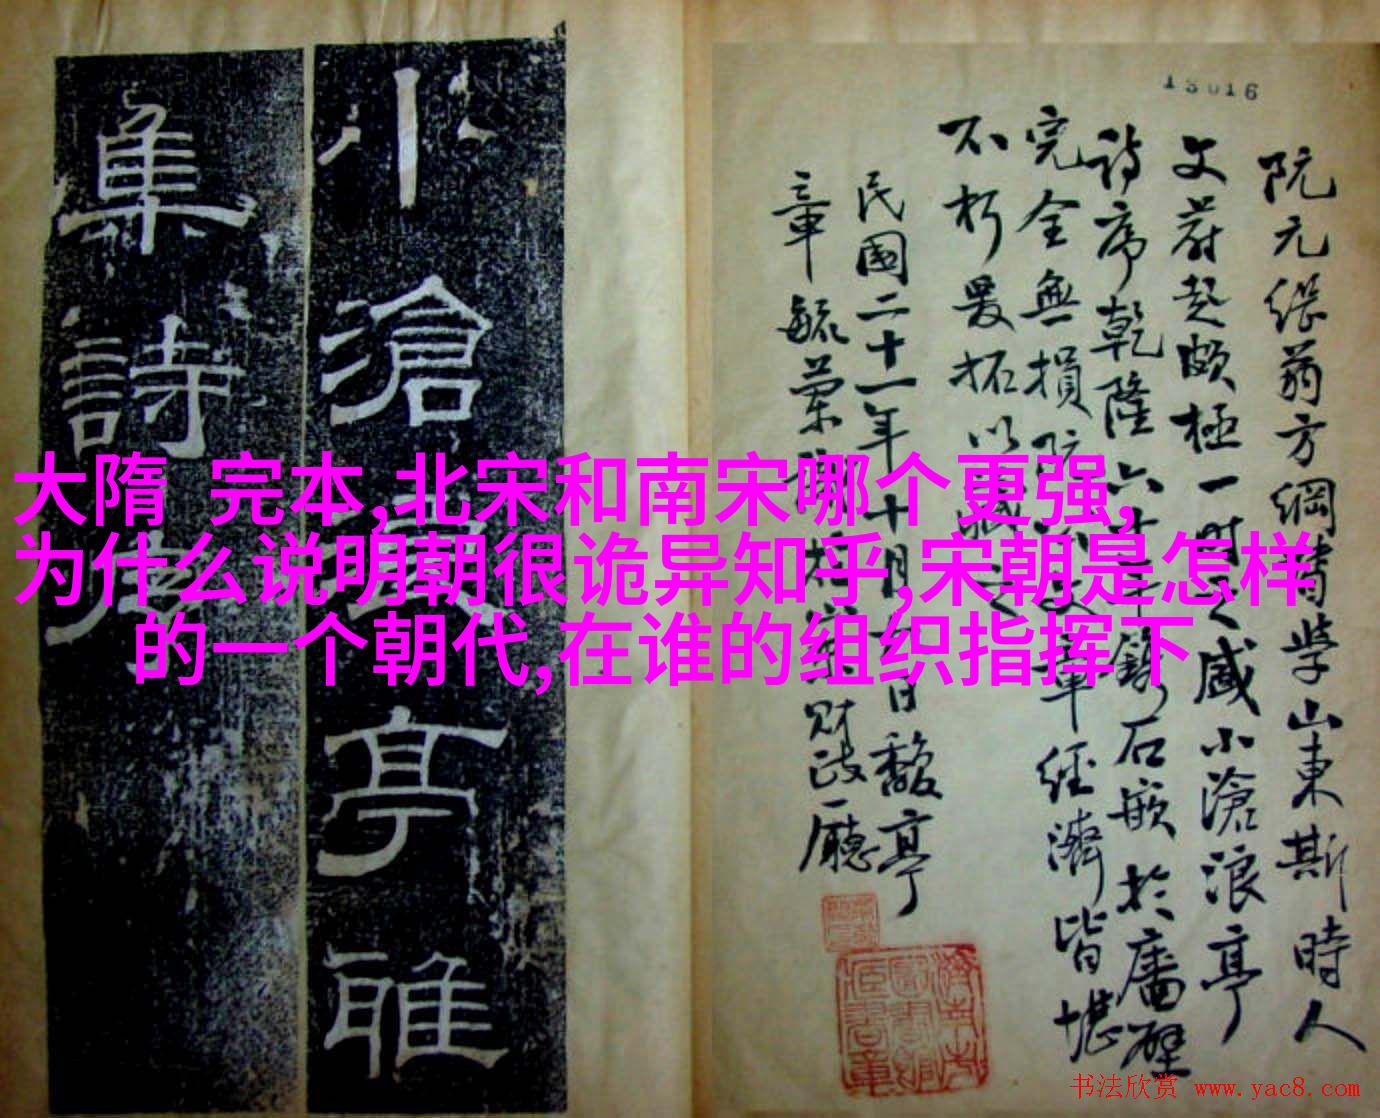 13016
大隋 完本,北宋和南宋哪个更强,
为什么说明朝很诡异知乎,宋朝是怎样
的一个朝代,在谁的组织指挥下
阮元继翁方綱督学山東斯時人
文蔚起頗極一時之盛小滄浪亭
詩序乾隆六十年鐫石嵌於廧壁
完全無損阮文章經濟皆堪
不朽爰拓以藏
民國二十一年十月日馥亭
章毓蘭財政廳
小滄浪亭雅
集詩序
书法欣赏 www.yac8.com